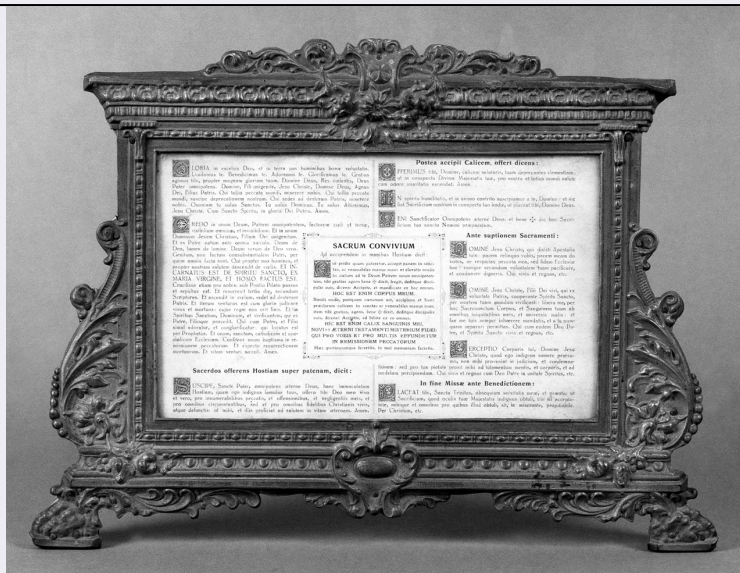 GLORIA in excelsis Deo, et in terra pax hominibus bonæ voluntatis.
Laudamus te. Benedicimus te. Adoramus te. Glorificamus te. Gratias
agimus tibi, propter magnam gloriam tuam. Domine Deus, Rex cœlestis, Deus
Pater omnipotens. Domine, Fili unigenite, Jesu Christe, Domine Deus, Agnus
Dei, Filius Patris. Qui tollis peccata mundi, miserere nobis. Qui tollis peccata
mundi, suscipe deprecationem nostram. Qui sedes ad dexteram Patris, miserere
nobis. Quoniam tu solus Sanctus. Tu solus Dominus. Tu solus Altissimus,
Jesu Christe. Cum Sancto Spiritu, in gloria Dei Patris. Amen.
CREDO in unum Deum, Patrem omnipotentem, factorem cœli et terræ,
visibilium omnium, et invisibilium. Et in unum
Dominum Jesum Christum, Filium Dei unigenitum.
Et ex Patre natum ante omnia sæcula. Deum de
Deo, lumen de lumine, Deum verum de Deo vero.
Genitum, non factum, consubstantialem Patri, per
quem omnia facta sunt. Qui propter nos homines, et
propter nostram salutem descendit de cœlis. ET IN-
CARNATUS EST DE SPIRITU SANCTO, EX
MARIA VIRGINE, ET HOMO FACTUS EST.
Crucifixus etiam pro nobis: sub Pontio Pilato passus
et sepultus est. Et resurrexit tertia die, secundum
Scripturas. Et ascendit in cœlum, sedet ad dexteram
Patris. Et iterum venturus est cum gloria judicare
vivos et mortuos: cujus regni non erit finis. Et in
Spiritum Sanctum, Dominum, et vivificantem: qui ex
Patre, Filioque procedit. Qui cum Patre, et Filio
simul adoratur, et conglorificatur: qui locutus est
per Prophetas. Et unam, sanctam, catholicam et apo-
stolicam Ecclesiam. Confiteor unum baptisma in re-
missionem peccatorum. Et expecto resurrectionem
mortuorum. Et vitam venturi sæculi. Amen.
Sacerdos offerens Hostiam super patenam, dicit:
SUSCIPE, Sancte Pater, omnipotens æterne Deus, hanc immaculatam
Hostiam, quam ego indignus famulus tuus, offero tibi Deo meo vivo
et vero, pro innumerabilibus peccatis, et offensionibus, et negligentiis meis, et
pro omnibus circumstantibus, sed et pro omnibus fidelibus Christianis vivis,
atque defunctis: ut mihi, et illis proficiat ad salutem in vitam æternam. Amen.
SACRUM CONVIVIUM
Ad accipiendam in manibus Hostiam dicit:
Qui pridie quam pateretur, accepit panem in sanc-
tas, ac venerabiles manus suas: et elevatis oculis
in cœlum ad te Deum Patrem suum omnipoten-
tem, tibi gratias agens, bene ✠ dixit, fregit, deditque disci-
pulis suis, dicens: Accipite, et manducate ex hoc omnes:
HOC EST ENIM CORPUS MEUM.
Simili modo, postquam cœnatum est, accipiens et hunc
præclarum calicem in sanctas ac venerabiles manus suas:
item tibi gratias, agens, bene ✠ dixit, deditque discipulis
suis, dicens: Accipite, et bibite ex eo omnes:
HIC EST ENIM CALIX SANGUINIS MEI,
NOVI ET ÆTERNI TESTAMENTI: MYSTERIUM FIDEI:
QUI PRO VOBIS ET PRO MULTIS EFFUNDETUR
IN REMISSIONEM PECCATORUM
Hæc quotiescumque feceritis, in mei memoriam facietis.
Postea accipit Calicem, offert dicens:
OFFERIMUS tibi, Domine, calicem salutaris, tuam deprecantes clementiam:
ut in conspectu Divinæ Majestatis tuæ, pro nostra et totius mundi salute
cum odore suavitatis ascendat. Amen.
IN spiritu humilitatis, et in animo contrito suscipiamur a te, Domine: et sic
fiat Sacrificium nostrum in conspectu tuo hodie, ut placeat tibi, Domine Deus.
VENI Sanctificator Omnipotens æterne Deus: et bene ✠ dic hoc Sacri-
ficium tuo sancto Nomini præparatum.
Ante suptionem Sacramenti:
DOMINE Jesu Christe, qui dixisti Apostolis
tuis: pacem relinquo vobis, pacem meam do
vobis, ne respicias peccata mea, sed fidem Ecclesiæ
DOMINE Jesu Christe, Fili Dei vivi, qui ex
voluntate Patris, cooperante Spiritu Sancto,
per mortem tuam mundum vivificasti: libera me, per
hoc sacrosanctum Corpus, et Sanguinem tuum ab
omnibus iniquitatibus meis, et universis malis: et
fac me tuis semper inhærere mandatis, et a te num-
quam separari permittas. Qui cum eodem Deo Pa-
tre, et Spiritu Sancto vivis et regnas, etc.
PERCEPTIO Corporis tui, Domine Jesu
Christe, quod ego indignus sumere præsu-
mo, non mihi proveniat in judicium, et condemna-
tionem: sed pro tua pietate prosit mihi ad tutamentum mentis, et corporis, et ad
medelam percipiendam. Qui vivis et regnas cum Deo Patre in unitate Spiritus, etc.
In fine Missæ ante Benedictionem:
PLACEAT tibi, Sancta Trinitas, obsequium servitutis meæ, et præsta: ut
Sacrificium, quod oculis tuæ Majestatis indignus obtuli, tibi sit accepta-
bile, mihique et omnibus pro quibus illud obtuli, sit, te miserante, propitiabile.
Per Christum, etc.